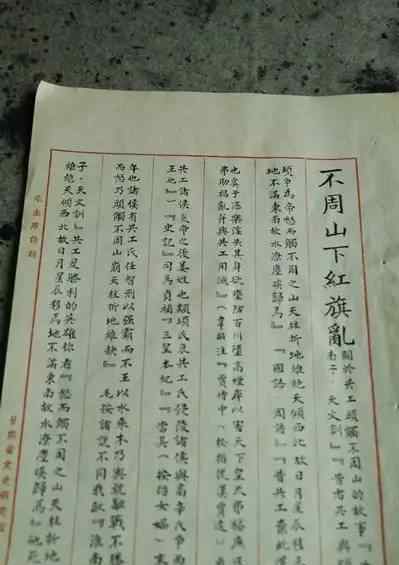 不周山下紅旗亂
關於共工頭觸不周山的故事『
南子·天文訓』『昔者共工與
頊爭為帝怒而觸不周之山天柱折地維絶天傾西北故日月星辰
地不滿東南故水潦塵埃歸焉』『國語 周語』『昔共工棄此
也虞于湛樂淫失其身欲壅防百川墮高堙庳以害天下皇天弗福
弗助禍亂并興共工用滅』(韋昭注『賈侍中(按指後漢賈逵)
共工諸侯炎帝之後姜姓也顓頊氏衰共工氏侵陵諸侯與高辛氏爭而
王也』『史記』司馬貞補『三皇本紀』『當其(按指女媧)末
年也諸侯有共工氏任智刑以强霸而不王以水乘木乃與祝融戰不勝
而怒乃頭觸不周山崩天柱折地維缺』 毛按諸說不同我取『淮南
子·天文訓』共工是勝利的英雄你看『怒而觸不周之山天柱折地
維絶天傾西北故日月星辰移焉地不滿東南故水潦塵埃歸焉』他死
毛主席詩詞
甘肅省文史研究館